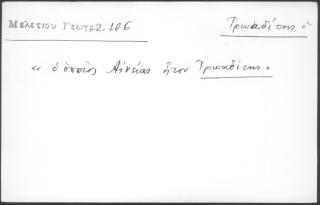 Μελετίου Γεωγρ2. 106
Τρωαδίτης ὁ
« ὁ ὁποῖος Αἰνείας ἦτον Τρωαδίτης »